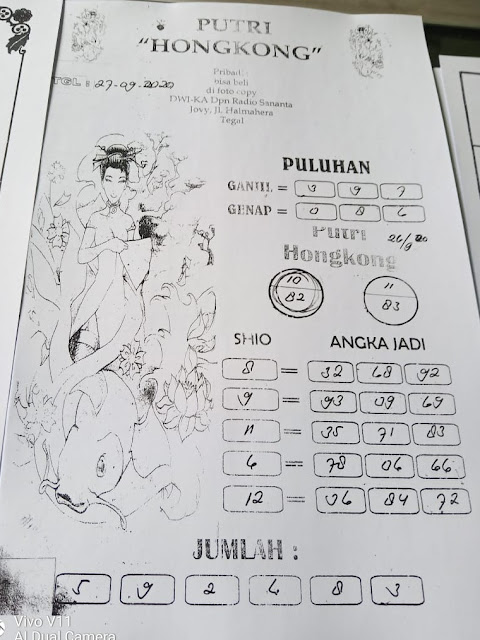 PUTRI
"HONGKONG"
Pribadi :
bisa beli
di foto copy
DWI-KA Dpn Radio Sananta
Jovy, Jl. Halmahera
Tegal
TGL : 27-09-2020
PULUHAN
GANJIL = 3 9 7
GENAP = 0 8 6
Putri 26/9 20
Hongkong
10 11
82 83
SHIO ANGKA JADI
8 = 32 68 92
9 = 93 09 69
11 = 35 71 83
6 = 78 06 66
12 = 36 84 72
JUMLAH :
5 9 2 6 8 3
Vivo V11
AI Dual Camera